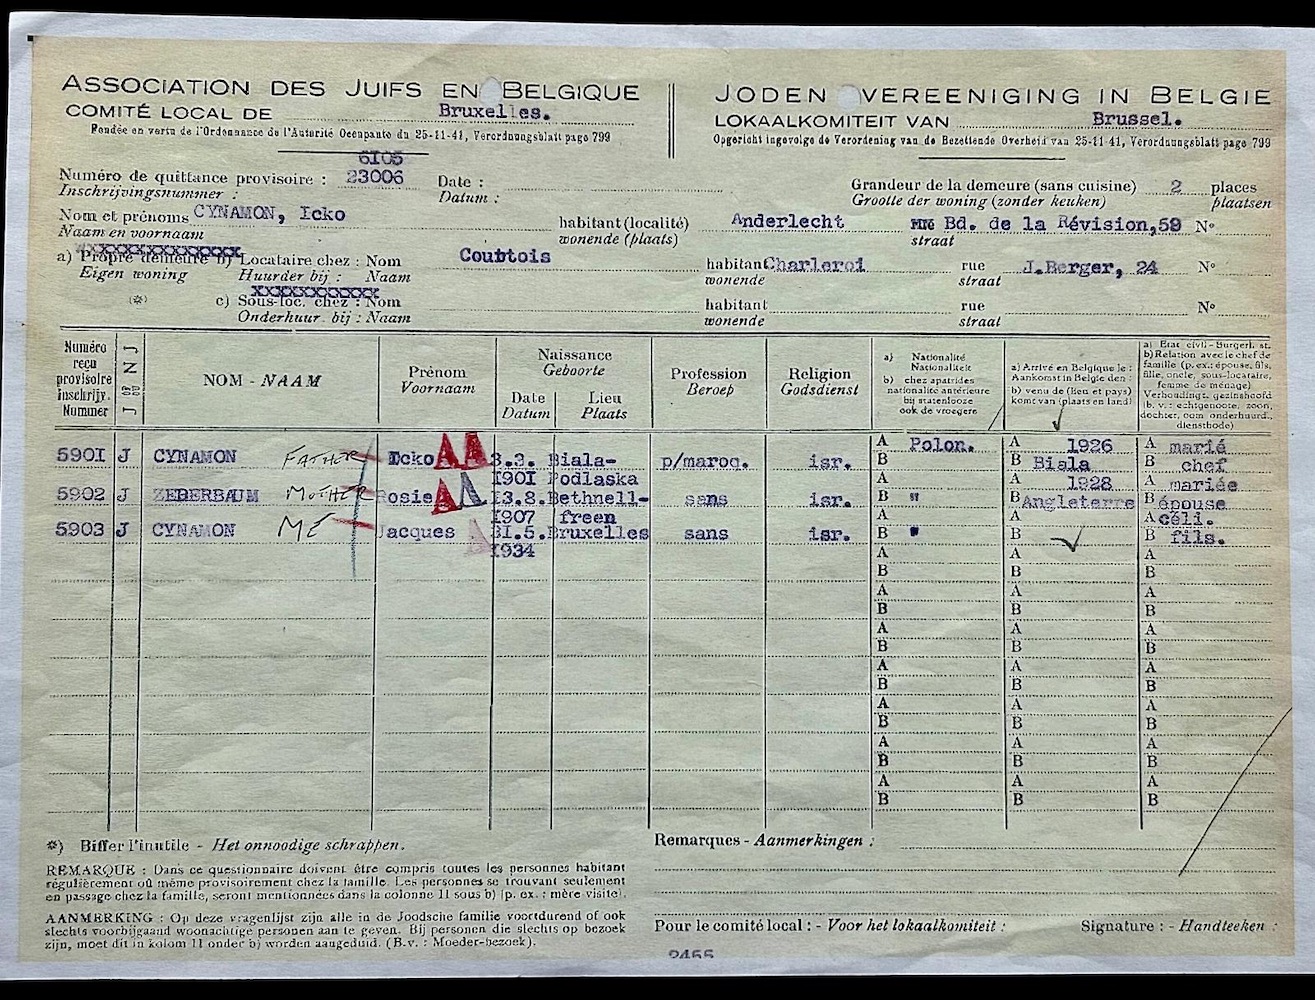 ASSOCIATION DES JUIFS EN BELGIQUE
COMITÉ LOCAL DE Bruxelles.
Fondée en vertu de l'Ordonnance de l'Autorité Occupante du 25-11-41, Verordnungsblatt page 799
JODEN VEREENIGING IN BELGIE
LOKAALKOMITEIT VAN Brussel.
Opgericht ingevolge de Verordening van de Bezettende Overheid van 25-11-41, Verordnungsblatt page 799
6105
Numéro de quittance provisoire : 23006
Inschrijvingsnummer :
Date :
Datum :
Grandeur de la demeure (sans cuisine) 2 places
Grootte der woning (zonder keuken) plaatsen
Nom et prénoms CYNAMON, Icko
Naam en voornaam
habitant (localité) Anderlecht
wonende (plaats)
Bd. de la Révision,59 N°
straat
a) Propre demeure b) Locataire chez : Nom Courtois
Eigen woning Huurder bij : Naam
habitant Charleroi
wonende
rue J.Berger, 24 N°
straat
(*) c) Sous-loc. chez : Nom
Onderhuur. bij : Naam
habitant
wonende
rue N°
straat
Numéro reçu provisoire
Inschrijv. Nummer
J ou of N J
NOM - NAAM
Prénom
Voornaam
Naissance
Geboorte
Date
Datum
Lieu
Plaats
Profession
Beroep
Religion
Godsdienst
a) Nationalité
Nationaliteit
b) chez apatrides
nationalité antérieure
bij statenlooze
ook de vroegere
a) Arrivé en Belgique le :
Aankomst in Belgie den :
b) venu de (lieu et pays)
komt van (plaats en land)
a) Etat civil - Burgerl. st.
b) Relation avec le chef de
famille (p. ex.: épouse, fils,
fille, oncle, sous-locataire,
femme de ménage)
Verhouding t. gezinshoofd
(b. v. : echtgenoote, zoon,
dochter, oom onderhuurd.,
dienstbode)
5901 J CYNAMON FATHER Icko 3.3. Biala- p/maroq. isr. A Polon. A 1926 A marié
1901 Podlaska B B Biala B chef
5902 J ZEBERBAUM MOTHER Rosie 13.8. Bethnell- sans isr. A A 1928 A mariée
1907 freen B " B Angleterre B épouse
5903 J CYNAMON ME Jacques 31.5. Bruxelles sans isr. A A A céli.
1934 B " B B fils.
A A A
B B B
A A A
B B B
A A A
B B B
A A A
B B B
A A A
B B B
A A A
B B B
A A A
B B B
*) Biffer l'inutile - Het onnoodige schrappen.
REMARQUE : Dans ce questionnaire doivent être compris toutes les personnes habitant
régulièrement où même provisoirement chez la famille. Les personnes se trouvant seulement
en passage chez la famille, seront mentionnées dans la colonne 11 sous b) (p. ex. : mère-visite).
AANMERKING : Op deze vragenlijst zijn alle in de Joodsche familie voortdurend of ook
slechts voorbijgaand woonachtige personen aan te geven. Bij personen die slechts op bezoek
zijn, moet dit in kolom 11 onder b) worden aangeduid. (B.v. : Moeder-bezoek).
Remarques - Aanmerkingen :
Pour le comité local : - Voor het lokaalkomiteit : Signature : - Handteeken :